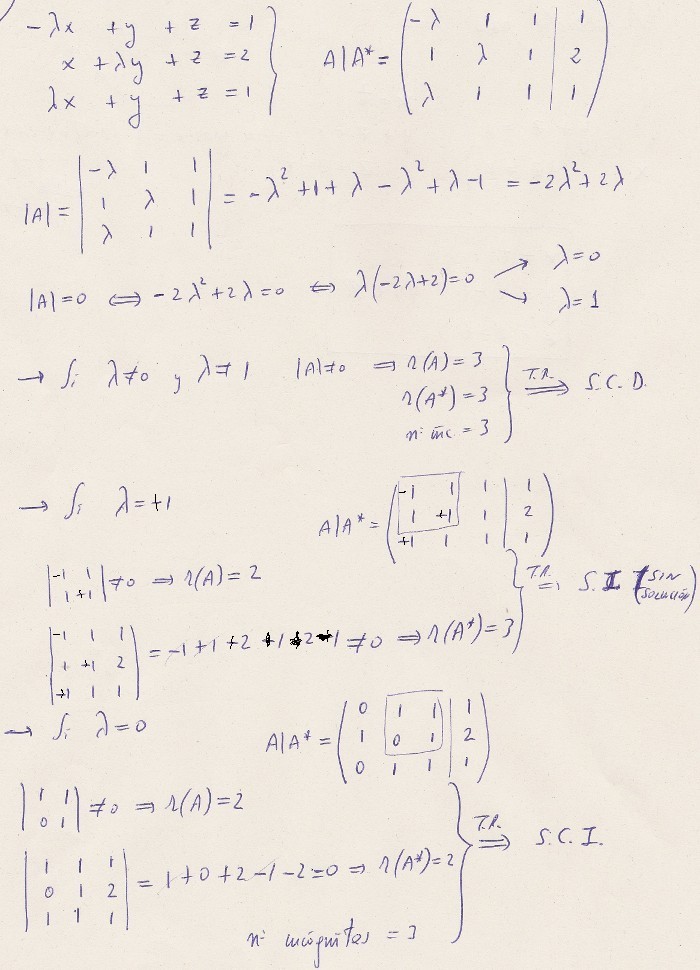 -λx + y + z = 1
x + λy + z = 2
λx + y + z = 1
A|A* = ( -λ 1 1 | 1
1 λ 1 | 2
λ 1 1 | 1 )
|A| = | -λ 1 1
1 λ 1
λ 1 1 | = -λ² + 1 + λ - λ² + λ - 1 = -2λ² + 2λ
|A| = 0 ⟺ -2λ² + 2λ = 0 ⟺ λ(-2λ+2) = 0 ↗ λ = 0
↘ λ = 1
→ Si λ ≠ 0 y λ ≠ 1 |A| ≠ 0 ⟹ r(A) = 3
r(A*) = 3
nº inc = 3 } T.R. ⟹ S.C.D.
→ Si λ = +1 A|A* = ( -1 1 1 | 1
1 +1 1 | 2
+1 1 1 | 1 )
| -1 1
1 +1 | ≠ 0 ⟹ r(A) = 2
| -1 1 1
1 +1 2
+1 1 1 | = -1 + 1 + 2 +1 +2 -1 ≠ 0 ⟹ r(A*) = 3 } T.R. ⟹ S.I (SIN SOLUCIÓN)
→ Si λ = 0 A|A* = ( 0 1 1 | 1
1 0 1 | 2
0 1 1 | 1 )
| 1 1
0 1 | ≠ 0 ⟹ r(A) = 2
| 1 1 1
0 1 2
1 1 1 | = 1 + 0 + 2 - 1 - 2 = 0 ⟹ r(A*) = 2
nº incógnitas = 3 } T.R. ⟹ S.C.I.